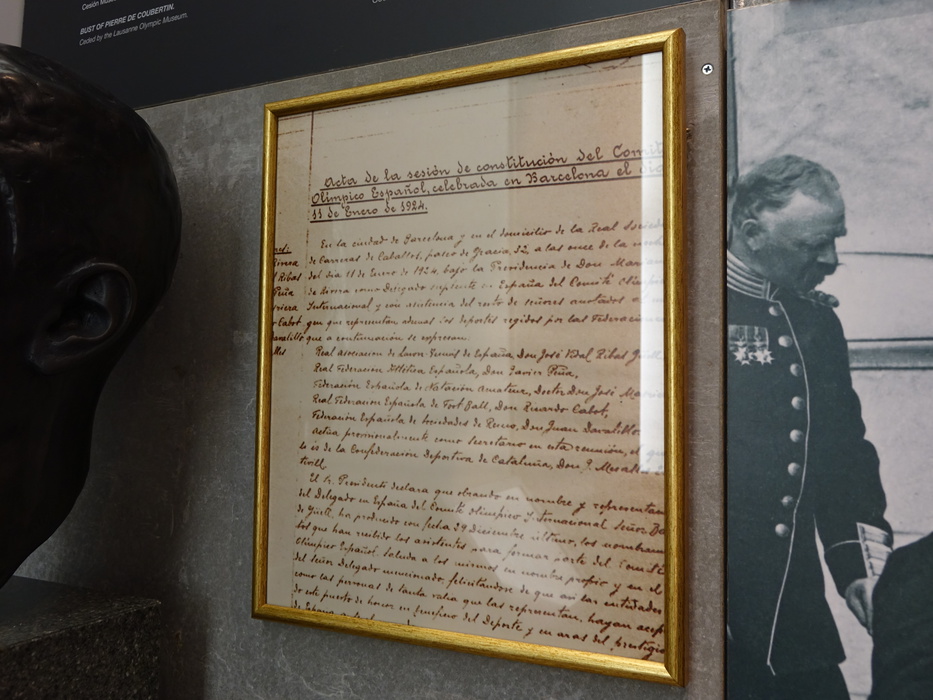 Cesión
BUST OF PIERRE DE COUBERTIN.
Ceded by the Lausanne Olympic Museum.
Acta de la sesión de constitución del Comit
Olímpico Español, celebrada en Barcelona el día
11 de Enero de 1924.
En la ciudad de Barcelona y en el domicilio de la Real Socied
de Carreras de Caballos, paseo de Gracia 32, a las once de la
del día 11 de Enero de 1924, bajo la Presidencia de Don
de Rivera como Delegado suplente en España del Comité Olímpi
Internacional y con asistencia del resto de señores anotados al
que que representan además los deportes regidos por las Federaci
que a continuación se expresan:
Real asociación de Lawn Tennis de España, Don José Vidal Ribas
Real Federación Atlética Española, Don Javier Peña,
Federación Española de Natación Amateur, Doctor Don José
Real Federación Española de Foot Ball, Don Ricardo Cabot,
Federación Española de Sociedades de Remo, Don Juan Daralillo
actúa provisionalmente como Secretario en esta reunión, el que
lo es de la Confederación Deportiva de Cataluña, Don J. Mesalles
tivill.
El Sr. Presidente declara que obrando en nombre y representa
del Delegado en España del Comité Olímpico Internacional Señor
de Güell, ha producido con fecha 29 Diciembre último, los nombram
tos que han recibido los asistentes para formar parte del Comité
Olímpico Español. Saluda a los mismos en nombre propio y en el
del señor Delegado mencionado, felicitándose de que así las entidades
como las personas de tanta valía que las representan, hayan acep
do este puesto de honor en beneficio del Deporte y en aras del prestigio
de España
Rivera
Ribas
Peña
Cabot
Daralillo